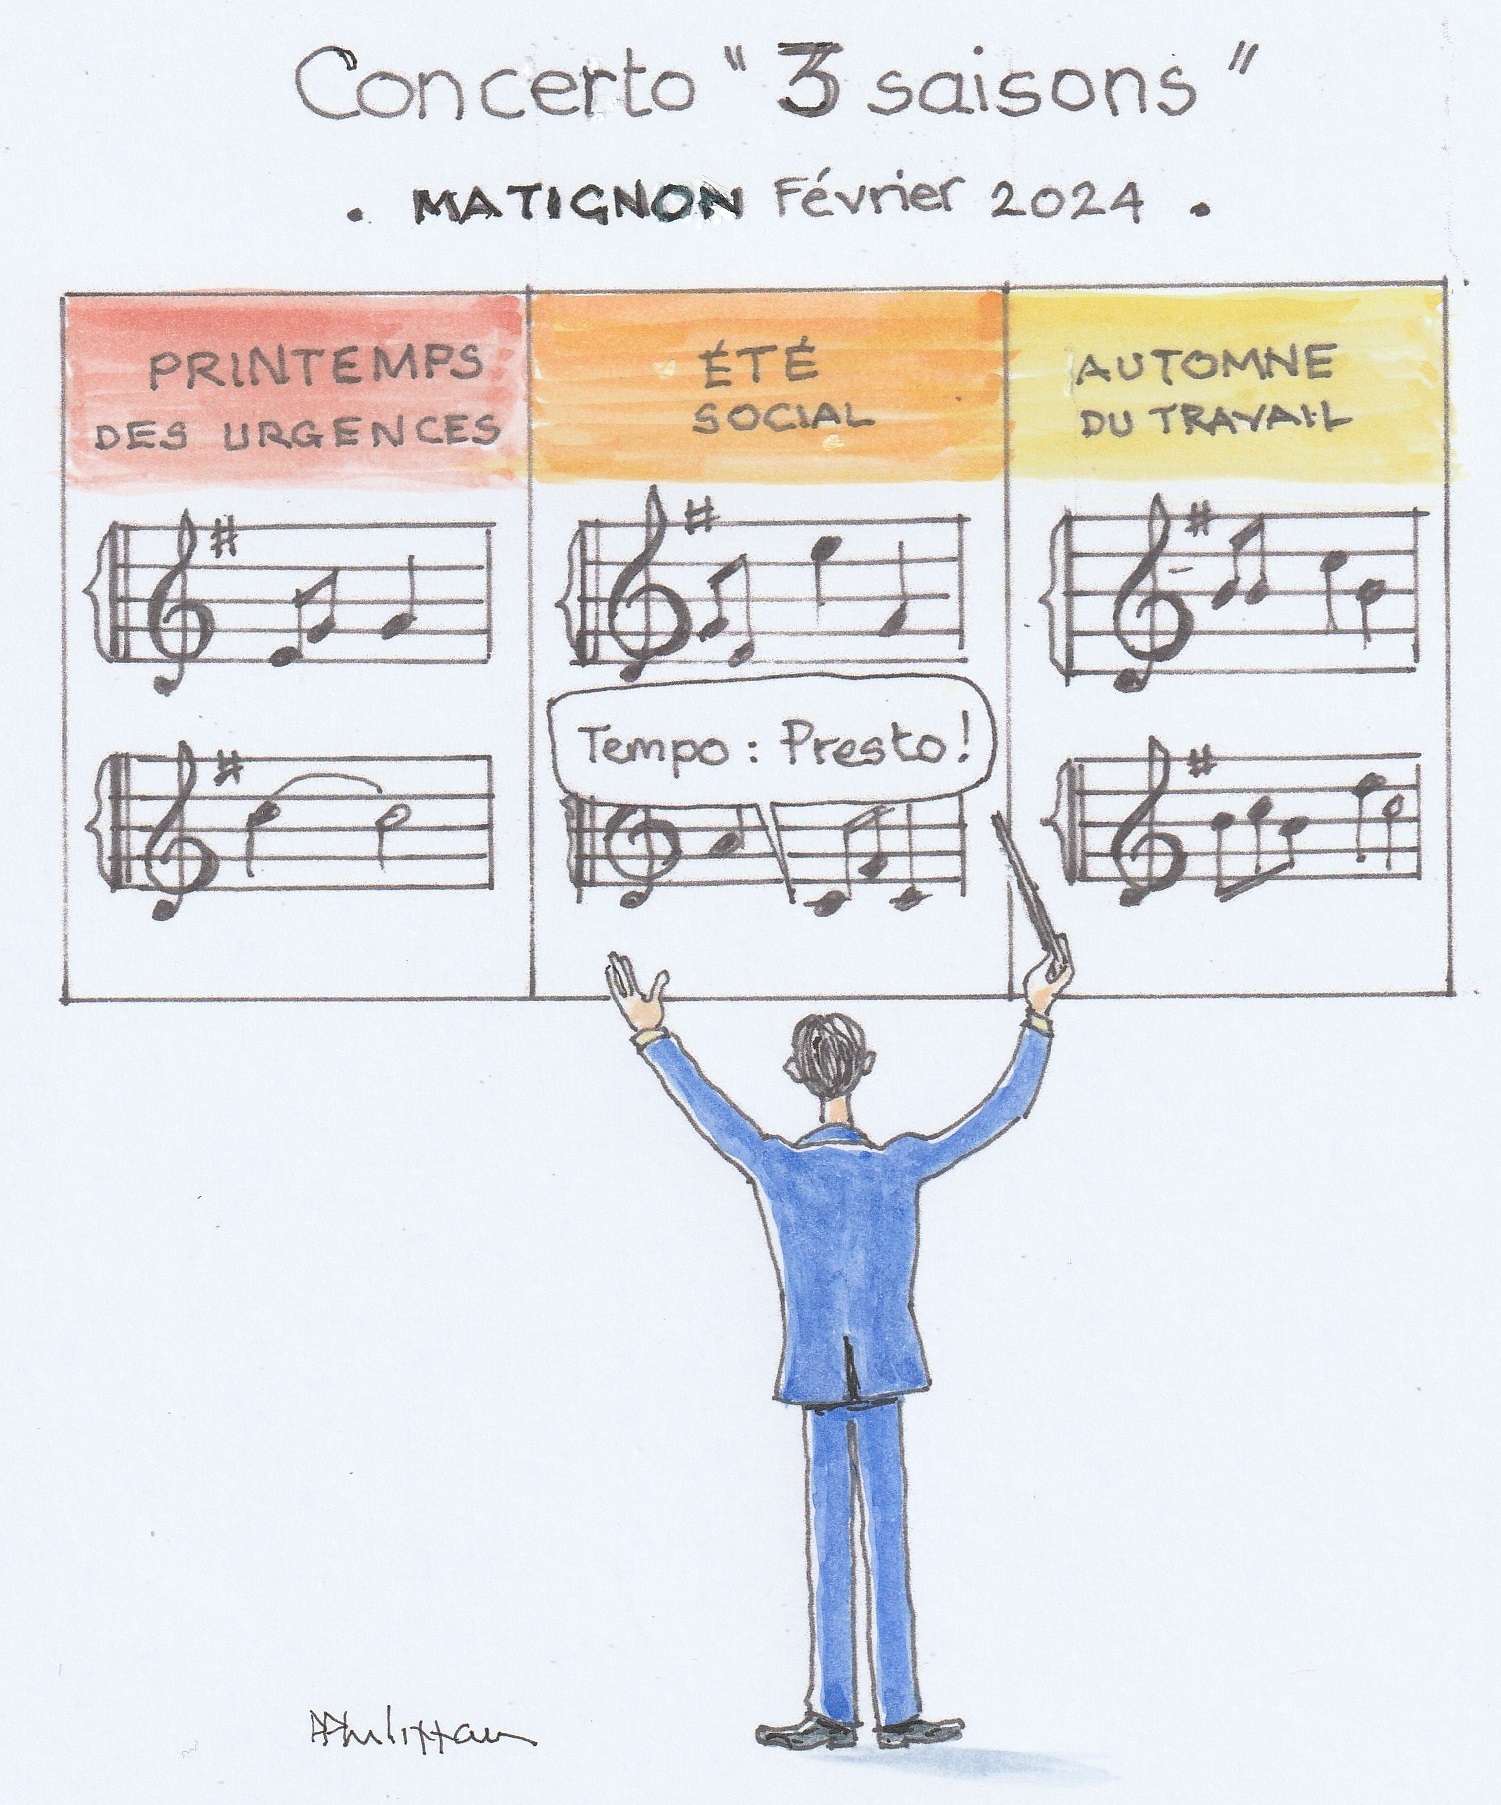 Concerto "3 saisons"
. MATIGNON Février 2024 .
PRINTEMPS
DES URGENCES
ÉTÉ
SOCIAL
AUTOMNE
DU TRAVAIL
Tempo : Presto!